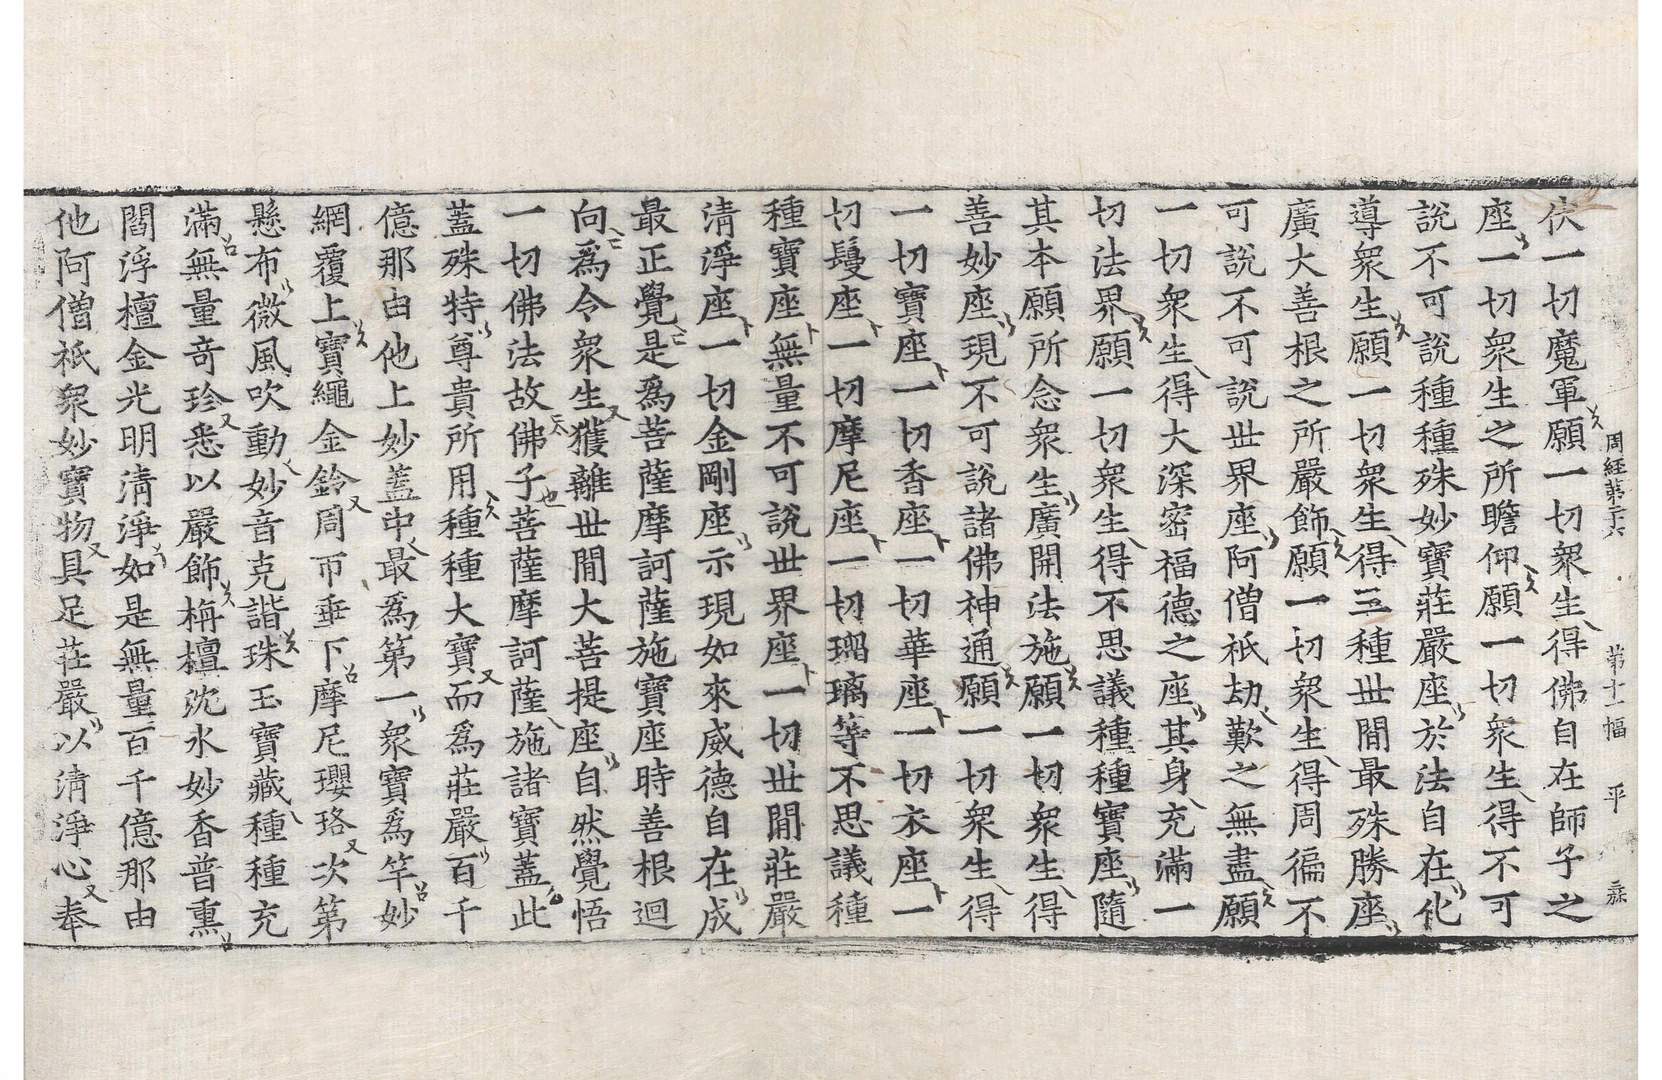 周經第二十六　第十一幅　平
伏一切魔軍願一切衆生得佛自在師子之
座一切衆生之所瞻仰願一切衆生得不可
說不可說種種殊妙寶莊嚴座於法自在化
導衆生願一切衆生得三種世間最殊勝座
廣大善根之所嚴飾願一切衆生得周徧不
可說不可說世界座阿僧祇劫歎之無盡願
一切衆生得大深密福德之座其身充滿一
切法界願一切衆生得不思議種種寶座隨
其本願所念衆生廣開法施願一切衆生得
善妙座現不可說諸佛神通願一切衆生得
一切寶座一切香座一切華座一切衣座一
切鬘座一切摩尼座一切瑠璃等不思議種
種寶座無量不可說世界座一切世間莊嚴
清淨座一切金剛座示現如來威德自在成
最正覺是爲菩薩摩訶薩施寶座時善根迴
向爲令衆生獲離世間大菩提座自然覺悟
一切佛法故佛子菩薩摩訶薩施諸寶蓋此
蓋殊特尊貴所用種種大寶而爲莊嚴百千
億那由他上妙蓋中最爲第一衆寶爲竿妙
網覆上寶繩金鈴周帀垂下摩尼瓔珞次第
懸布微風吹動妙音克諧珠玉寶藏種種充
滿無量奇珍悉以嚴飾栴檀沈水妙香普熏
閻浮檀金光明清淨如是無量百千億那由
他阿僧祇衆妙寶物具足莊嚴以清淨心奉